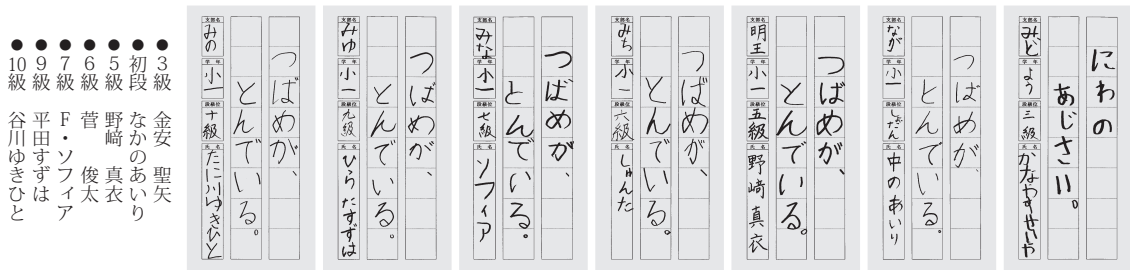 にわの
あじさい。
支部名 みど 学年 よう 段級位 三級 氏名 かなやすせいや
つばめが、
とんでいる。
支部名 なが 学年 小一 段級位 しょだん 氏名 中のあいり
つばめが、
とんでいる。
支部名 明王 学年 小一 段級位 五級 氏名 野﨑真衣
つばめが、
とんでいる。
支部名 みち 学年 小一 段級位 六級 氏名 しゅんた
つばめが、
とんでいる。
支部名 みな 学年 小一 段級位 七級 氏名 ソフィア
つばめが、
とんでいる。
支部名 みゆ 学年 小一 段級位 九級 氏名 ひらたすずは
つばめが、
とんでいる。
支部名 みの 学年 小一 段級位 十級 氏名 たに川ゆきひと
●3級 金安 聖矢
●初段 なかのあいり
●5級 野﨑 真衣
●6級 菅 俊太
●7級 F・ソフィア
●9級 平田すずは
●10級 谷川ゆきひと